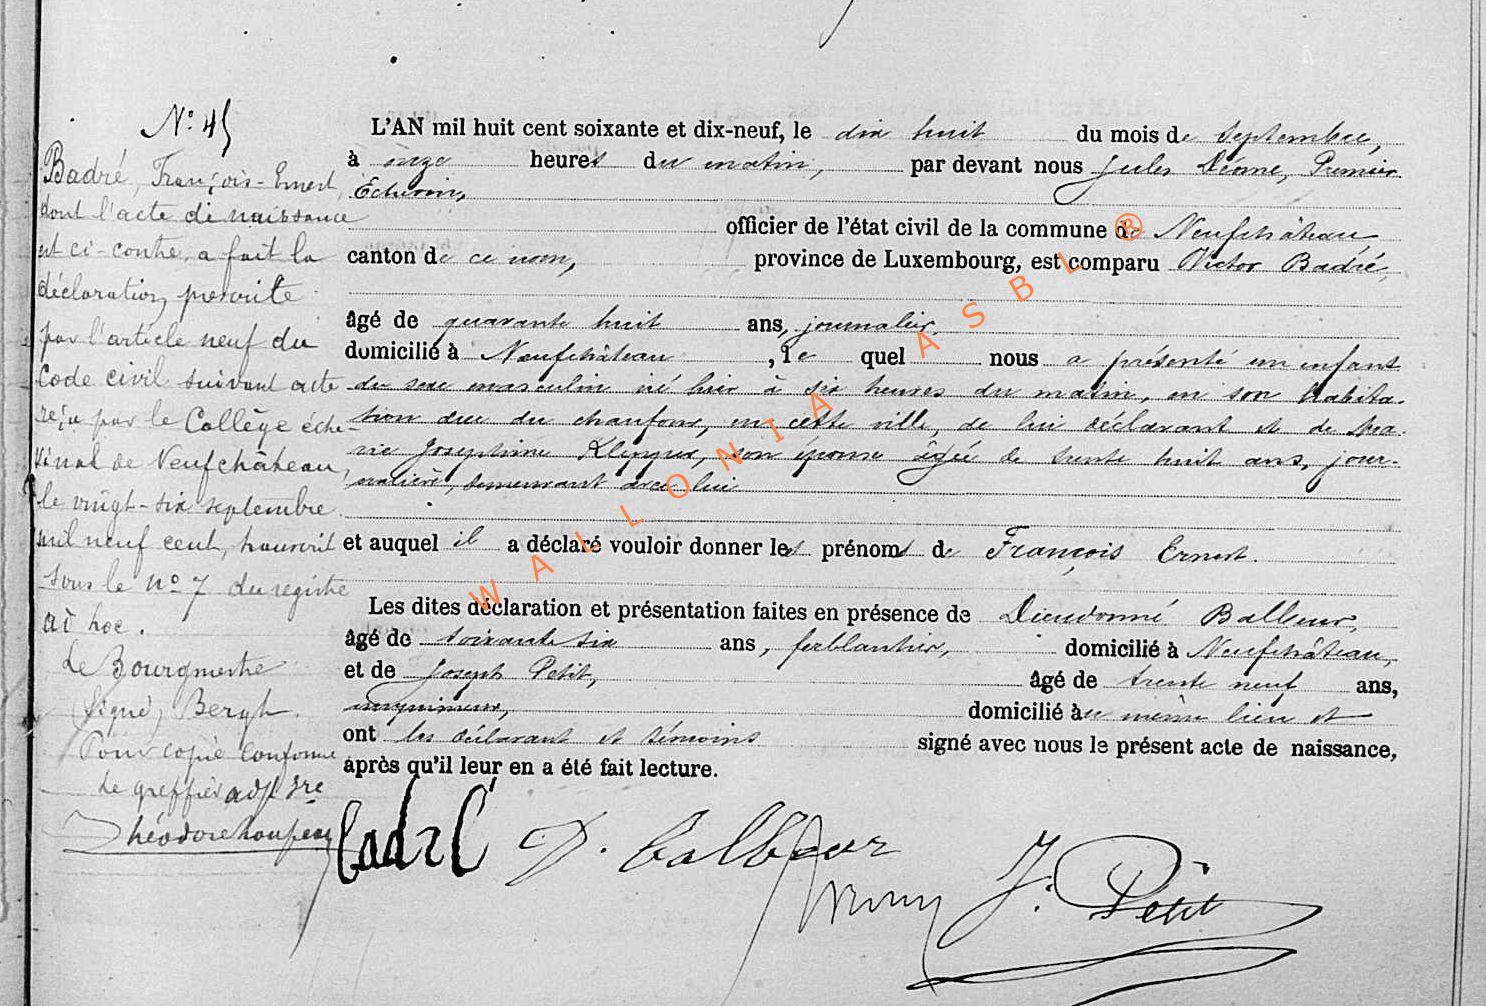 N° 45
Badré, François-Ernest,
dont l'acte de naissance
est ci-contre, a fait la
déclaration prescrite
par l'article neuf du
Code civil suivant acte
reçu par le Collège éche-
vinal de Neufchâteau,
le vingt-six septembre
mil neuf cent, transcrit
sous le n° 7 du registre
ad hoc.
Le Bourgmestre
(signé) Bergh.
Pour copie conforme
Le greffier adj
L'AN mil huit cent soixante et dix-neuf, le dix huit du mois de septembre,
à onze heures du matin, par devant nous Jules Premier
Echevin,
officier de l'état civil de la commune de Neufchâteau
canton de ce nom, province de Luxembourg, est comparu Victor Badré,
âgé de quarante huit ans, journalier,
domicilié à Neufchâteau, le quel nous a présenté un enfant
du sexe masculin né hier à six heures du matin, en son habita-
tion rue du chaufour, en cette ville, de lui déclarant et de Ma-
rie Joséphine son épouse âgée de trente huit ans, jour-
nalière, demeurant avec lui
et auquel il a déclaré vouloir donner les prénoms de François Ernest.
Les dites déclaration et présentation faites en présence de Dieudonné Balbeur,
âgé de soixante six ans, ferblantier, domicilié à Neufchâteau,
et de Joseph Petit, âgé de trente neuf ans,
domicilié au même lieu et
ont les déclarant et témoins signé avec nous le présent acte de naissance,
après qu'il leur en a été fait lecture.
Badré D. Balbeur
J. Petit
WALLONIA ASBL ®